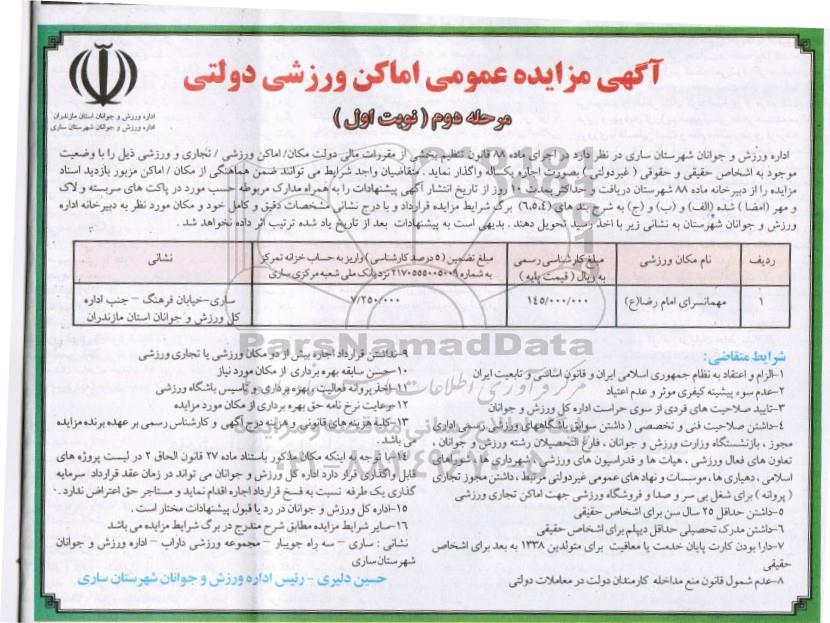 آگهی مزایده عمومی اماکن ورزشی دولتی
مرحله دوم ( نوبت اول )
اداره ورزش و جوانان استان مازندران
اداره ورزش و جوانان شهرستان ساری
اداره ورزش و جوانان شهرستان ساری در نظر دارد در اجرای ماده ۸۸ قانون تنظیم بخشی از مقررات مالی دولت مکان/ اماکن ورزشی / تجاری و ورزشی ذیل را با وضعیت
موجود به اشخاص حقیقی و حقوقی ( غیردولتی ) بصورت اجاره یکساله واگذار نماید . متقاضیان واجد شرایط می توانند ضمن هماهنگی از مکان / اماکن مزبور بازدید اسناد
مزایده را از دبیرخانه ماده ۸۸ شهرستان دریافت و حداکثر بمدت ۱۰ روز از تاریخ انتشار آگهی پیشنهادات را به همراه مدارک مربوطه حسب مورد در پاکت های سربسته و لاک
و مهر (امضا ) شده (الف) و (ب) و (ج) به شرح بند های (۶،۵،۴) برگ شرایط مزایده قرارداد و با درج نشانی مشخصات دقیق و کامل خود و مکان مورد نظر به دبیرخانه اداره
ورزش و جوانان شهرستان به نشانی زیر با اخذ رسید تحویل دهند . بدیهی است به پیشنهادات بعد از تاریخ یاد شده ترتیب اثر داده نخواهد شد .
ردیف نام مکان ورزشی مبلغ کارشناسی رسمی به ریال ( قیمت پایه ) مبلغ تضمین ( ۵ درصد کارشناسی ) واریز به حساب خزانه تمرکز به شماره ۲۱۷۰۵۵۵۰۰۵۰۰۹ نزد بانک ملی شعبه مرکزی ساری نشانی
۱ مهمانسرای امام رضا(ع) ۱۴۵/۰۰۰/۰۰۰ ۷/۲۵۰/۰۰۰ ساری-خیابان فرهنگ – جنب اداره کل ورزش و جوانان استان مازندران
شرایط متقاضی:
۱-الزام و اعتقاد به نظام جمهوری اسلامی ایران و قانون اساسی و تابعیت ایران
۲-عدم سوء پیشینه کیفری موثر و عدم اعتیاد
۳-تایید صلاحیت های فردی از سوی حراست اداره کل ورزش و جوانان
۴-داشتن صلاحیت فنی و تخصصی ( داشتن سوابق باشگاههای ورزشی رسمی اداری
مجوز ، بازنشستگاه وزارت ورزش و جوانان ، فارغ التحصیلان رشته ورزش و جوانان ،
تعاون های فعال ورزشی ، هیات ها و فدراسیون های ورزشی ، شهرداری ها شوراهای
اسلامی ، دهیاری ها ،موسسات و نهاد های عمومی غیردولتی مرتبط ، داشتن مجوز تجاری
( پروانه ) برای شغل بی سر و صدا و فروشگاه ورزشی جهت اماکن تجاری ورزشی
۵-داشتن حداقل ۲۵ سال سن برای اشخاص حقیقی
۶-داشتن مدرک تحصیلی حداقل دیپلم برای اشخاص حقیقی
۷-دارا بودن کارت پایان خدمت یا معافیت برای متولدین ۱۳۳۸ به بعد برای اشخاص
حقیقی
۸-عدم شمول قانون منع مداخله کارمندان دولت در معاملات دولتی
۹-نداشتن قرارداد اجاره بیش از دو مکان ورزشی یا تجاری ورزشی
۱۰-حسن سابقه بهره برداری از مکان مورد نیاز
۱۱-اخذ پروانه فعالیت ، بهره برداری و تاسیس باشگاه ورزشی
۱۲-رعایت نرخ نامه حق بهره برداری از مکان مورد مزایده
۱۳-کلیه هزینه های قانونی و هزینه درج آگهی و کارشناس رسمی بر عهده برنده مزایده
می باشد .
۱۴-با توجه به اینکه مکان مذکور باستناد ماده ۲۷ قانون الحاق ۲ در لیست پروژه های
قابل واگذاری قرار دارد اداره کل ورزش و جوانان می تواند در زمان عقد قرارداد سرمایه
گذاری یک طرفه نسبت به فسخ قرارداد اجاره اقدام نماید و مستاجر حق اعتراض ندارد .
۱۵-اداره کل ورزش و جوانان در رد یا قبول پیشنهادات مختار است .
۱۶-سایر شرایط مزایده مطابق شرح مندرج در برگ شرایط مزایده می باشد
نشانی : ساری – سه راه جویبار – مجموعه ورزشی داراب – اداره ورزش و جوانان
شهرستان ساری
حسین دلیری - رئیس اداره ورزش و جوانان شهرستان ساری
ParsNamadData